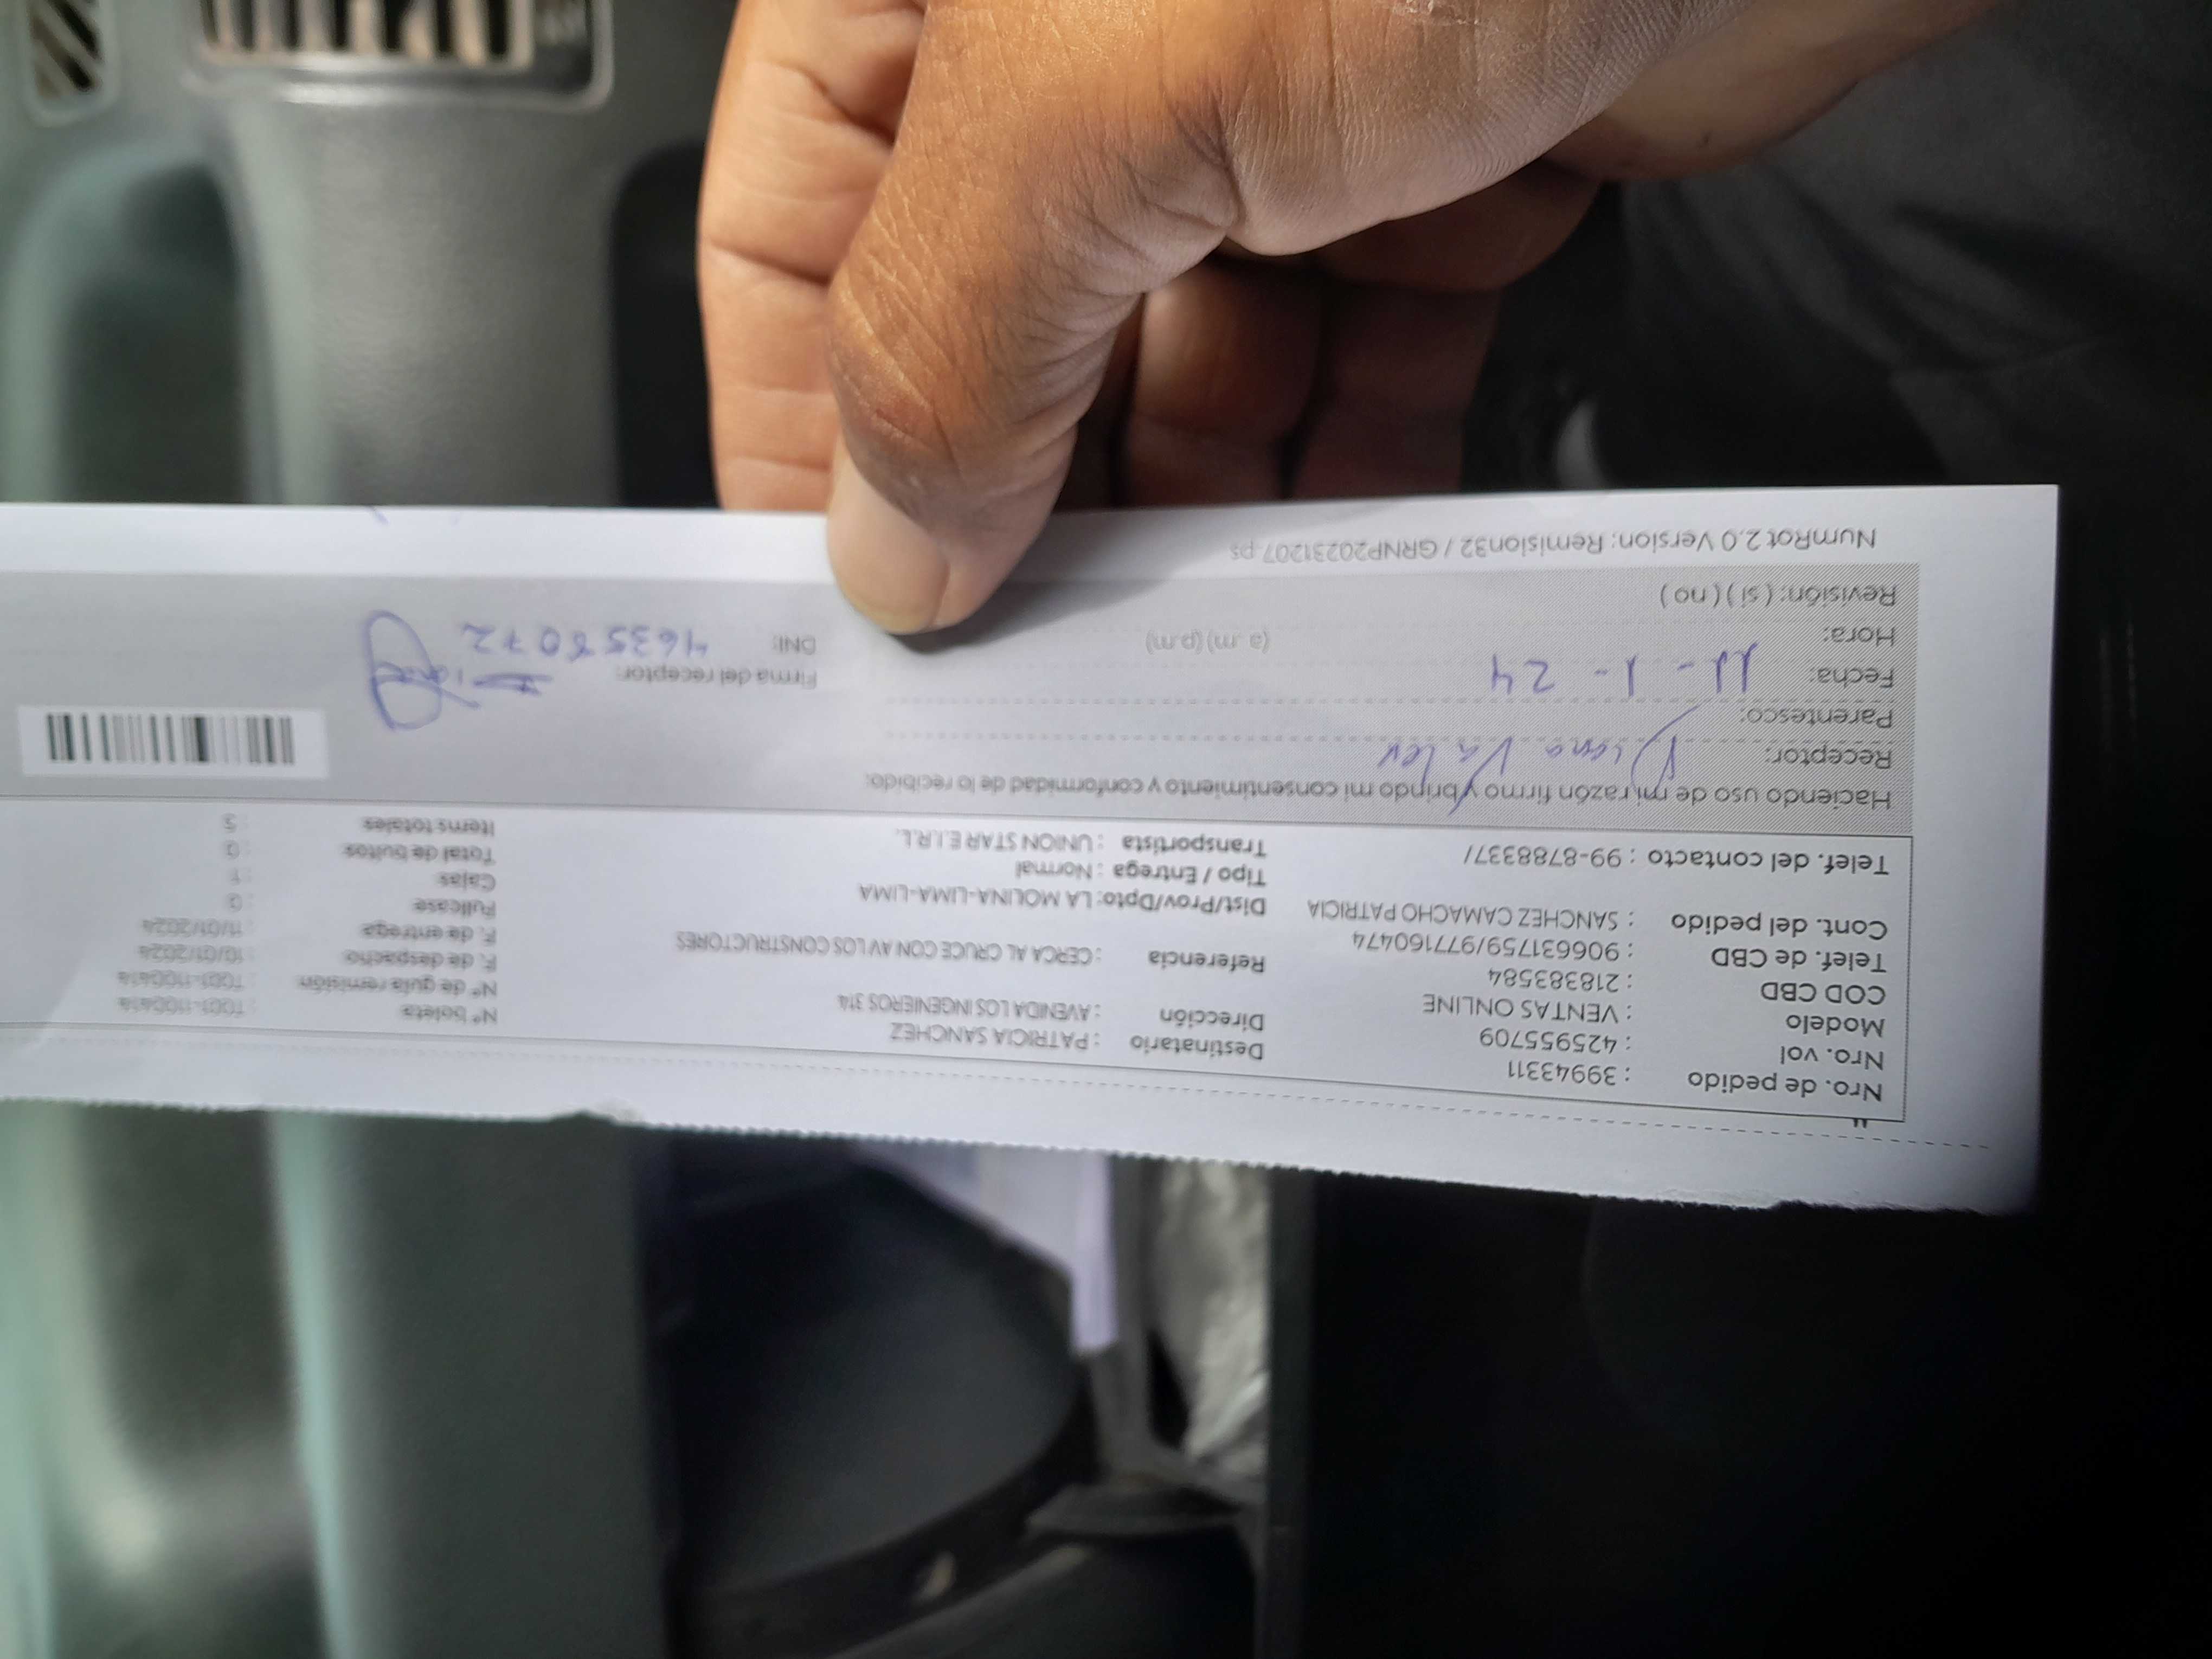 Nro. de pedido : 39943311
Nro. vol : 425955709
Modelo : VENTAS ONLINE
COD CBD : 218383584
Telef. de CBD : 906631759/977160474
Cont. del pedido : SANCHEZ CAMACHO PATRICIA
Telef. del contacto : 99-8788337/
Destinatario : PATRICIA SANCHEZ
Dirección : AVENIDA LOS INGENIEROS 314
Referencia : CERCA AL CRUCE CON AV LOS CONSTRUCTORES
Dist/Prov/Dpto: LA MOLINA-LIMA-LIMA
Tipo / Entrega : Normal
Transportista : UNION STAR E.I.R.L.
N° boleta
N° de guía remisión
F. de despacho : 10/01/2024
F. de entrega : 11/01/2024
Fullcase : 0
Cajas : 1
Total de bultos : 0
Items totales
Haciendo uso de mi razón firmo y brindo mi consentimiento y conformidad de lo recibido:
Receptor: Diana
Parentesco:
Fecha: 11 - 1 - 24
Hora: (a.m) (p.m)
Revisión: ( si ) ( no )
Firma del receptor:
DNI: 46358072
NumRot 2.0 Version: Remision32 / GRNP20231207.ps